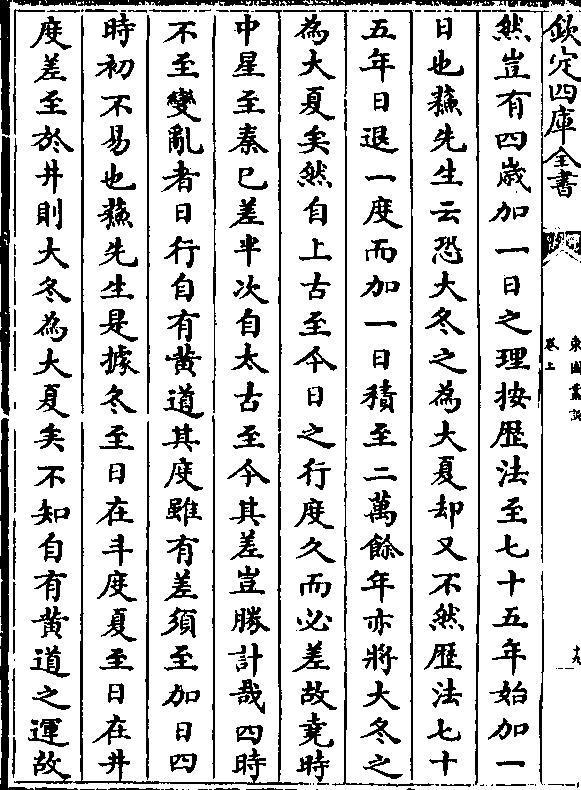 欽定四庫全書
卷上
然豈有四歳加一日之理按歴法至七十五年始加一
日也蘓先生云恐大冬之為大夏却又不然歴法七十
五年日退一度而加一日積至二萬餘年亦將大冬之
為大夏矣然自上古至今日之行度久而必差故堯時
中星至秦已差半次自太古至今其差豈勝計哉四時
不至變亂者日行自有黄道其度雖有差須至加日四
時初不易也蘓先生是據冬至日在斗度夏至日在井
度差至於井則大冬為大夏矣不知自有黄道之運故